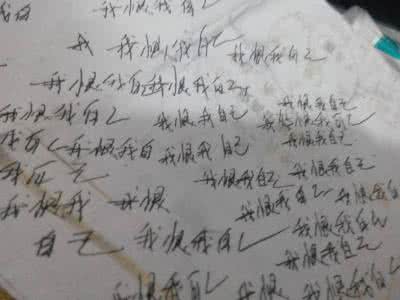 我恨我自己
我 我恨我自己 我恨我自己
我恨我自己我恨我自己
我恨我自己 我恨我自己 我恨我自己
我恨我自己
我自己 我恨我自 我恨我自己 我恨我自己
我恨我自己 我恨我自己
我恨我 我恨 我恨我自己 我恨我自
自己 我恨我自己 我恨我自己
我恨我自己
我恨我自己 我恨 我恨我自己